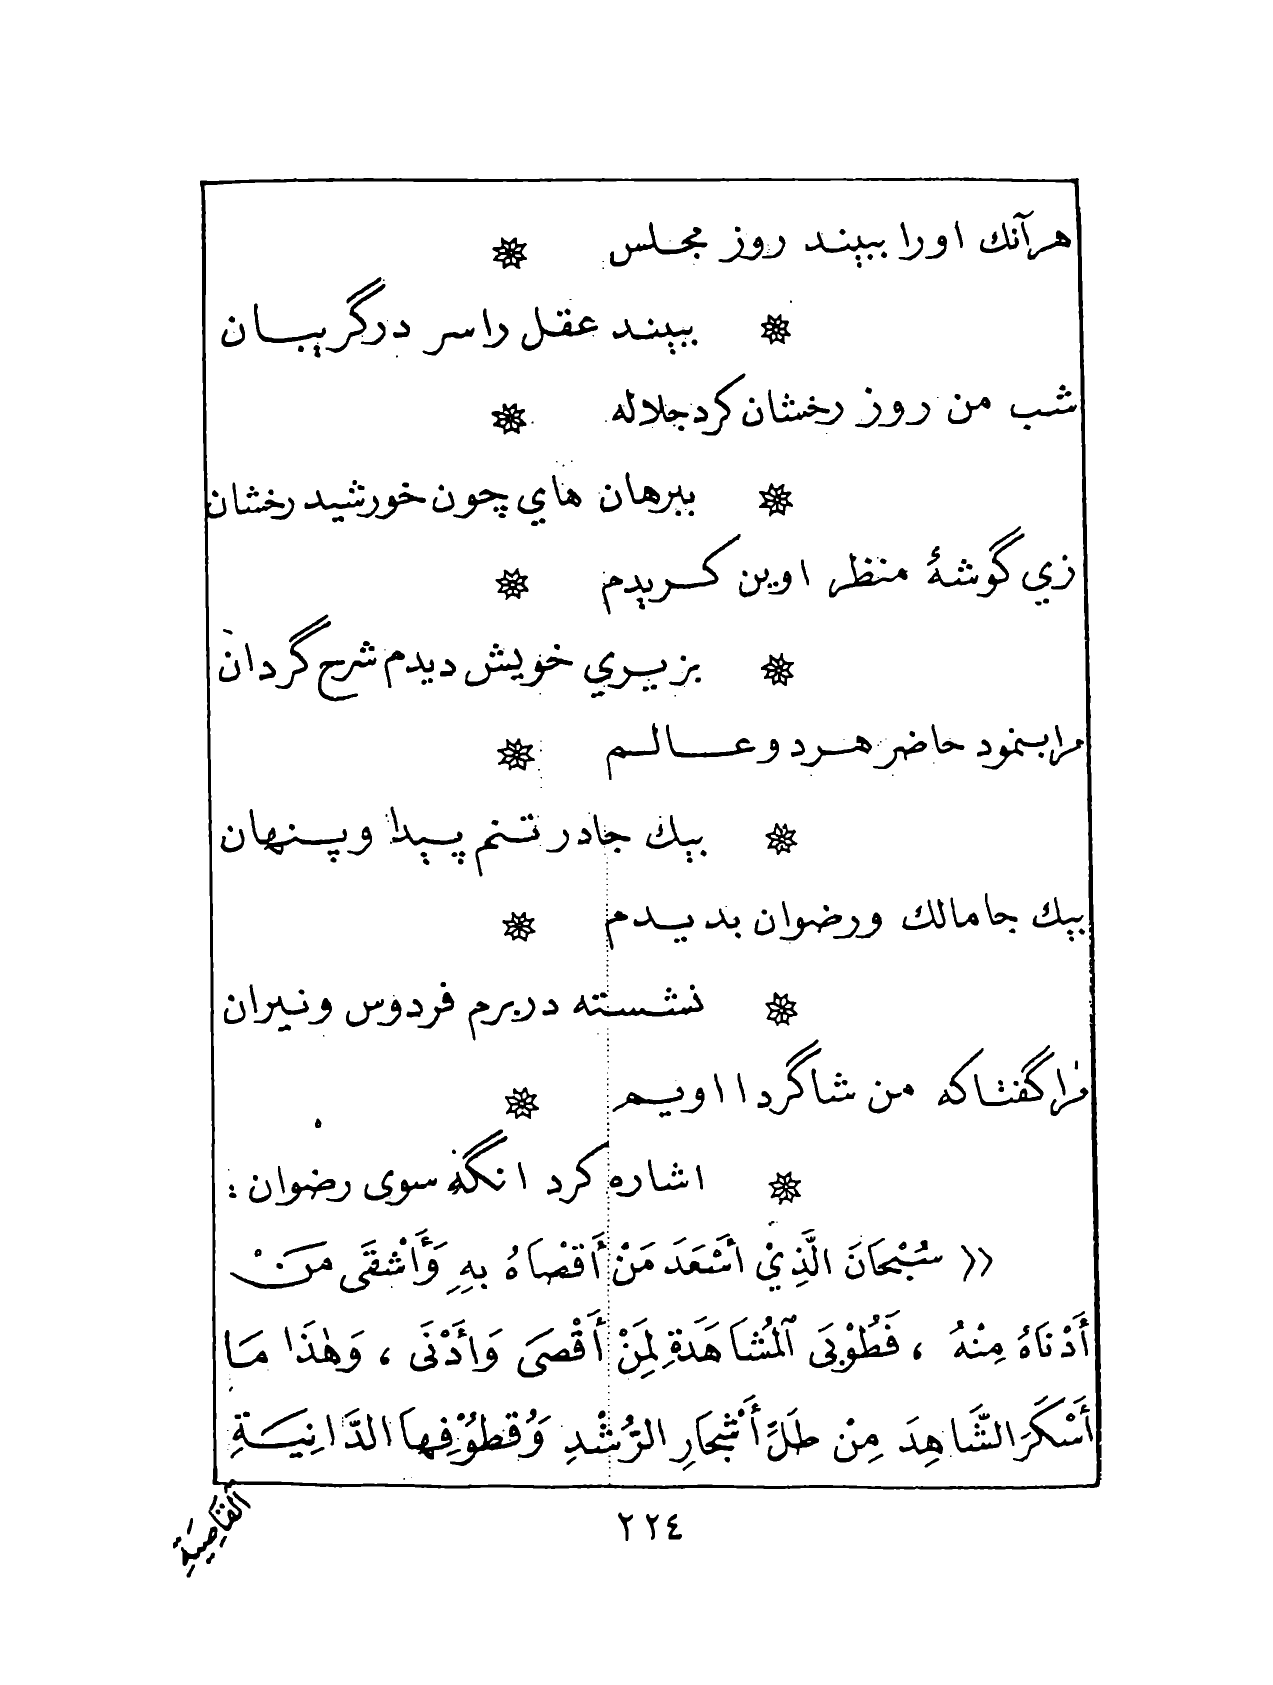 هرآنك اورا ببيند روز مجلس
ببيند عقل را سر درگريبان
شب من روز رخشان كرد جلاله
ببرهان هاي چون خورشيد رخشان
زي گوشهٔ منظر اوين كريدم
بزيري خويش ديدم شرح گردان
مرا بنمود حاضر هرد وعالم
بيك جادر تنم پيدا وپنهان
بيك جا مالك ورضوان بديدم
نشسته دربرم فردوس ونيران
مرا گفتا كه من شاگردا اويم
اشاره كرد انگه سوی رضوان :
« سُبْحَانَ الَّذِيْ أَسْعَدَ مَنْ أَقْصَاهُ بِهِ وَأَشْقَى مَنْ
أَدْنَاهُ مِنْهُ ، فَطُوْبَى الْمُشَاهَدَةِ لِمَنْ أَقْصَى وَأَدْنَى ، وَهٰذَا مَا
أَسْكَرَ الشَّاهِدَ مِنْ طَلِّ أَشْجَارِ الرُّشْدِ وَقُطُوْفِهَا الدَّانِيَةِ
الْقَاصِيَةِ
٢٢٤